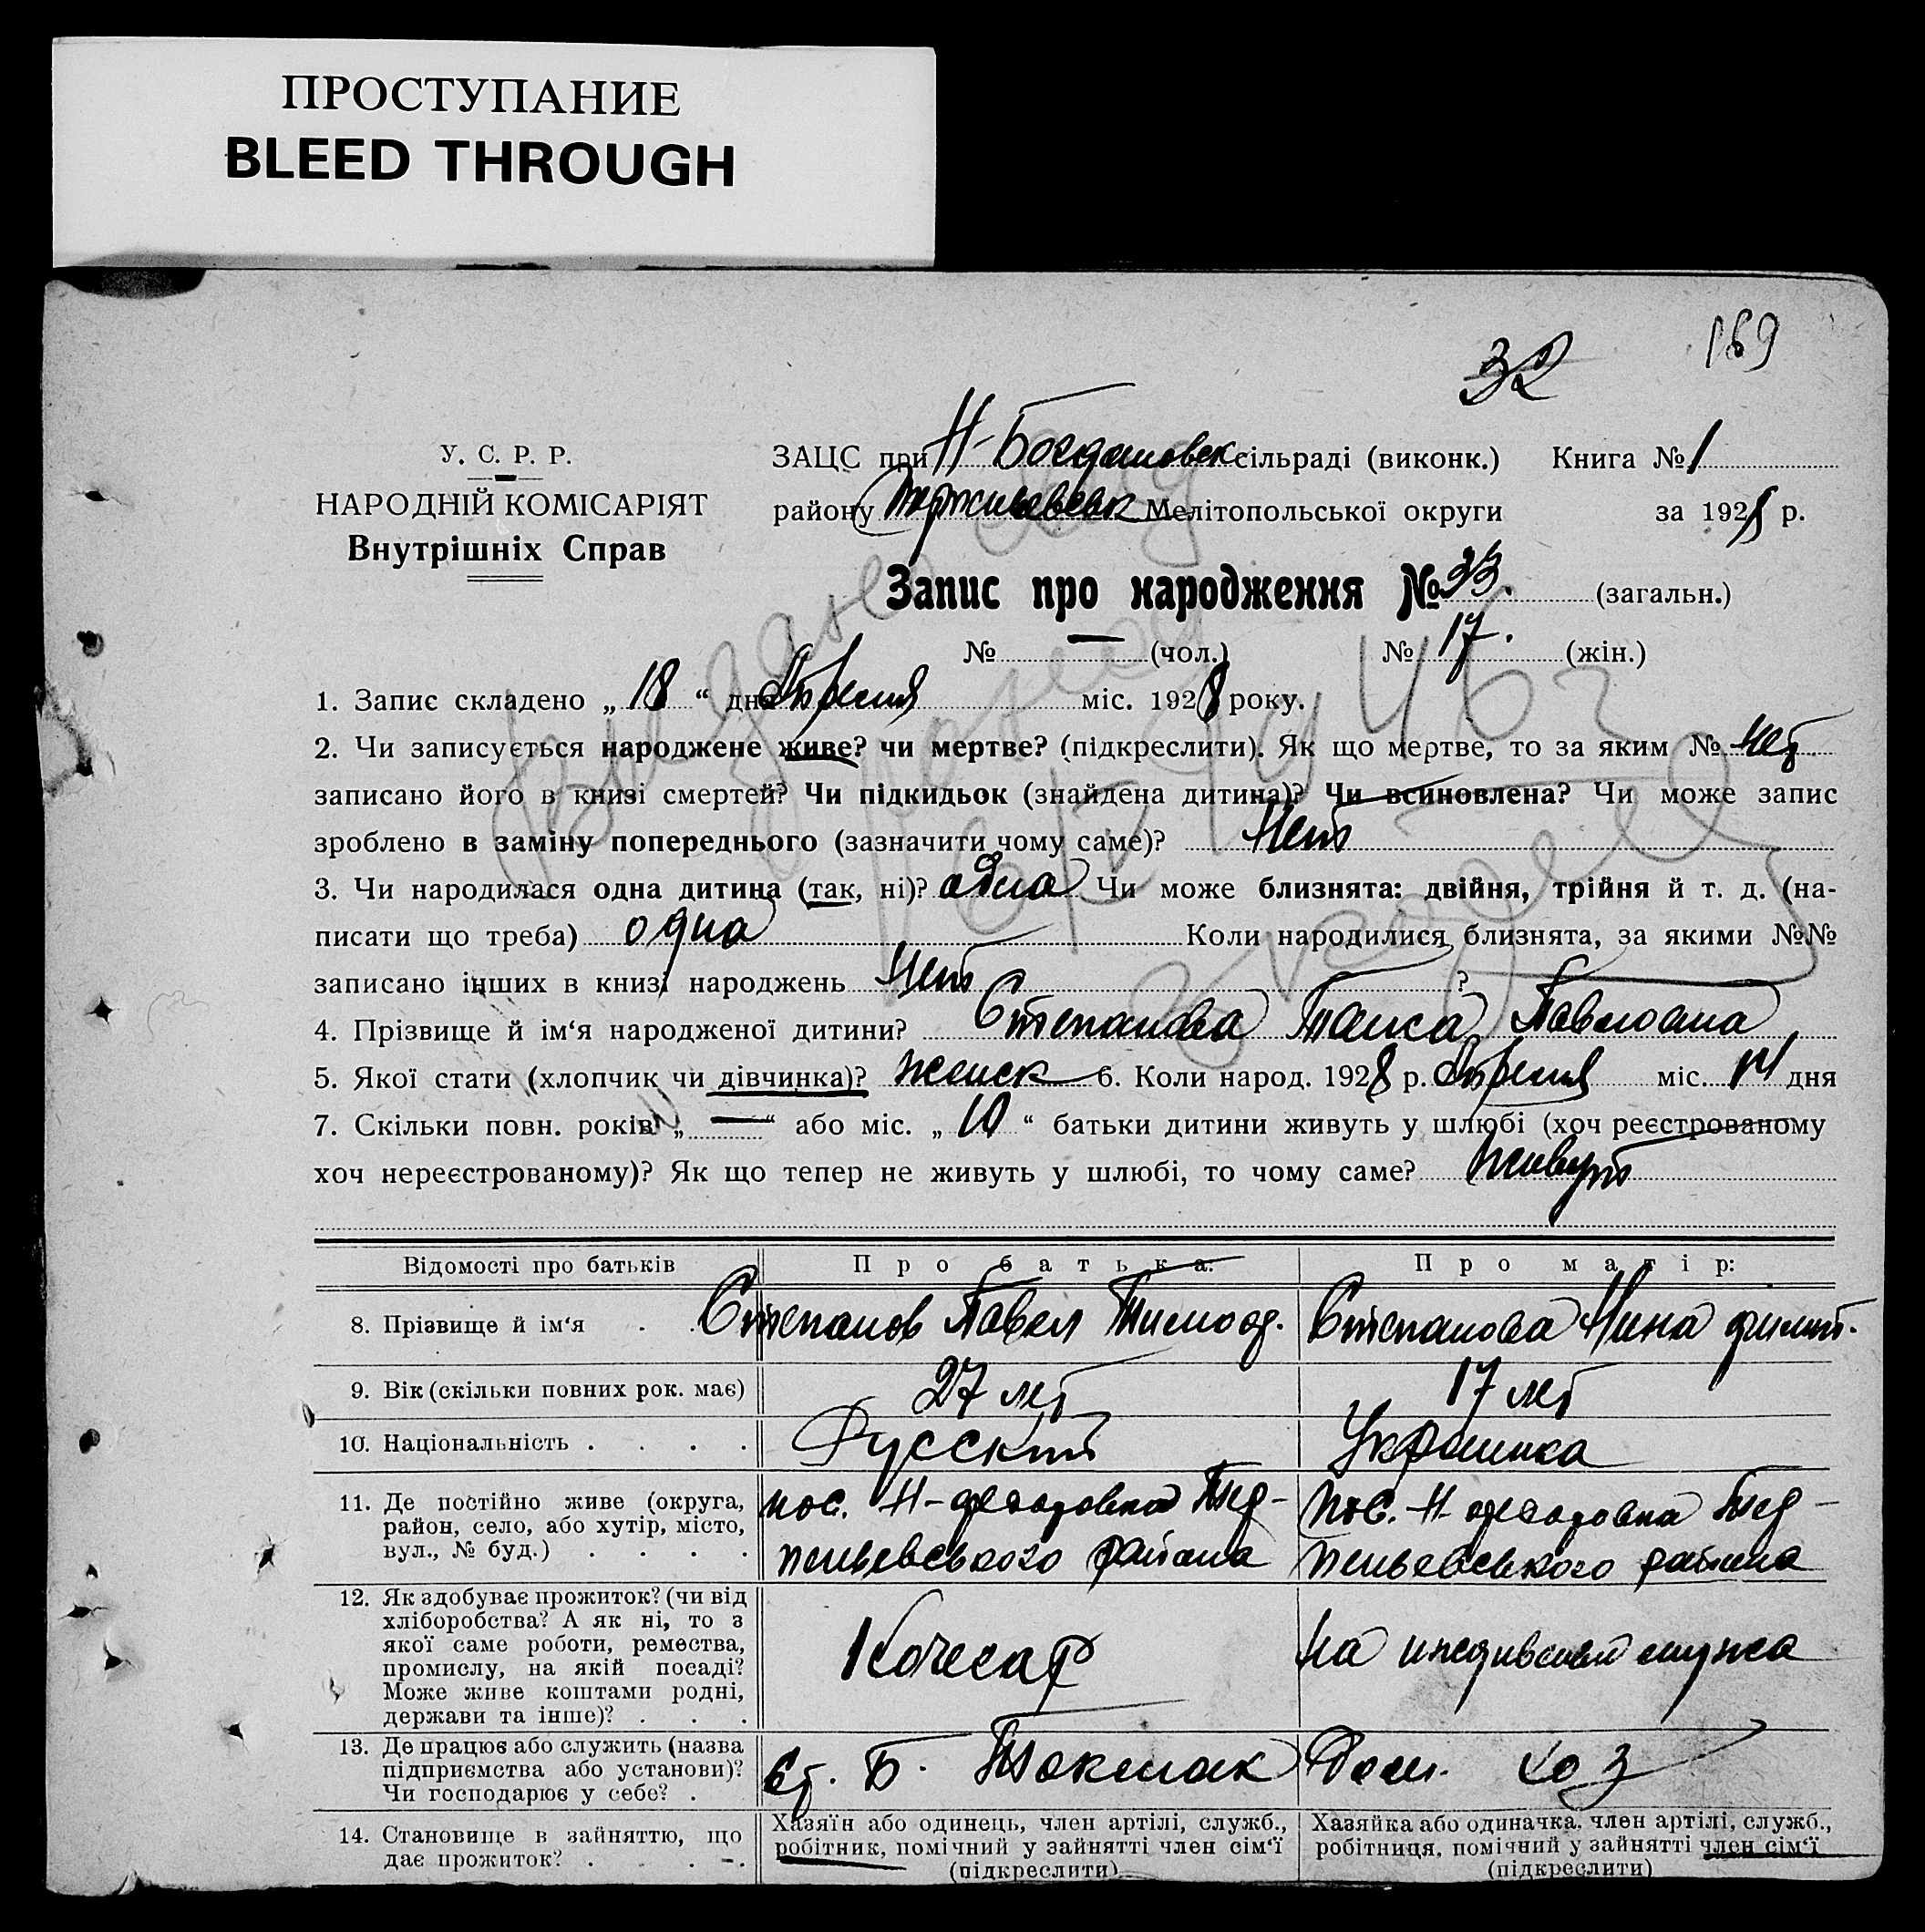 ПРОСТУПАНИЕ
BLEED THROUGH
169
32
У. С. Р. Р.
НАРОДНІЙ КОМІСАРІЯТ
Внутрішніх Справ
ЗАЦС при Н-Богдановск сільраді (виконк.) Книга № 1
району Мелітопольської округи за 1928 р.
Запис про народження № 33. (загальн.)
№ — (чол.) № 17. (жін.)
1. Запис складено „ 18 “ дня Апреля міс. 1928 року.
2. Чи записується народжене живе? чи мертве? (підкреслити). Як що мертве, то за яким № нет
записано його в книзі смертей? Чи підкидьок (знайдена дитина)? Чи всиновлена? Чи може запис
зроблено в заміну попереднього (зазначити чому саме)? Нет
3. Чи народилася одна дитина (так, ні)? одна Чи може близнята: двійня, трійня й т. д. (на-
писати що треба) одна Коли народилися близнята, за якими №№
записано інших в книзі народжень Нет ?
4. Прізвище й ім‘я народженої дитини? Степанова Таиса Павловна
5. Якої стати (хлопчик чи дівчинка)? женск 6. Коли народ. 1928 р. Апреля міс. 14 дня
7. Скільки повн. років „ — “ або міс. „ 10 “ батьки дитини живуть у шлюбі (хоч реєстрованому
хоч нереєстрованому)? Як що тепер не живуть у шлюбі, то чому саме? живут
Відомості про батьків Про батька: Про матір:
8. Прізвище й ім‘я . . Степанов Павел Тимоф. Степанова Нина филип.
9. Вік (скільки повних рок. має) 27 лет 17 лет
10. Національність . . . . Русский Украинка
11. Де постійно живе (округа, пос. Н-федоровка пос. Н-федоровка
район, село, або хутір, місто,
вул., № буд.) . . . . района района
12. Як здобуває прожиток? (чи від
хліборобства? А як ні, то з
якої саме роботи, ремества, Кочегар На иждивении мужа
промислу, на якій посаді?
Може живе коштами родні,
держави та інше)? . . .
13. Де працює або служить (назва
підприємства або установи)? Ст. Б. Токмак Дом. хоз
Чи господарює у себе? .
Хазяїн або одинець, член артілі, служб., Хазяйка або одиначка, член артілі, служб.,
14. Становище в зайняттю, що робітник, помічний у зайнятті член сім‘ї робітниця, помічний у зайнятті член сім‘ї
дає прожиток? . . . (підкреслити) (підкреслити)